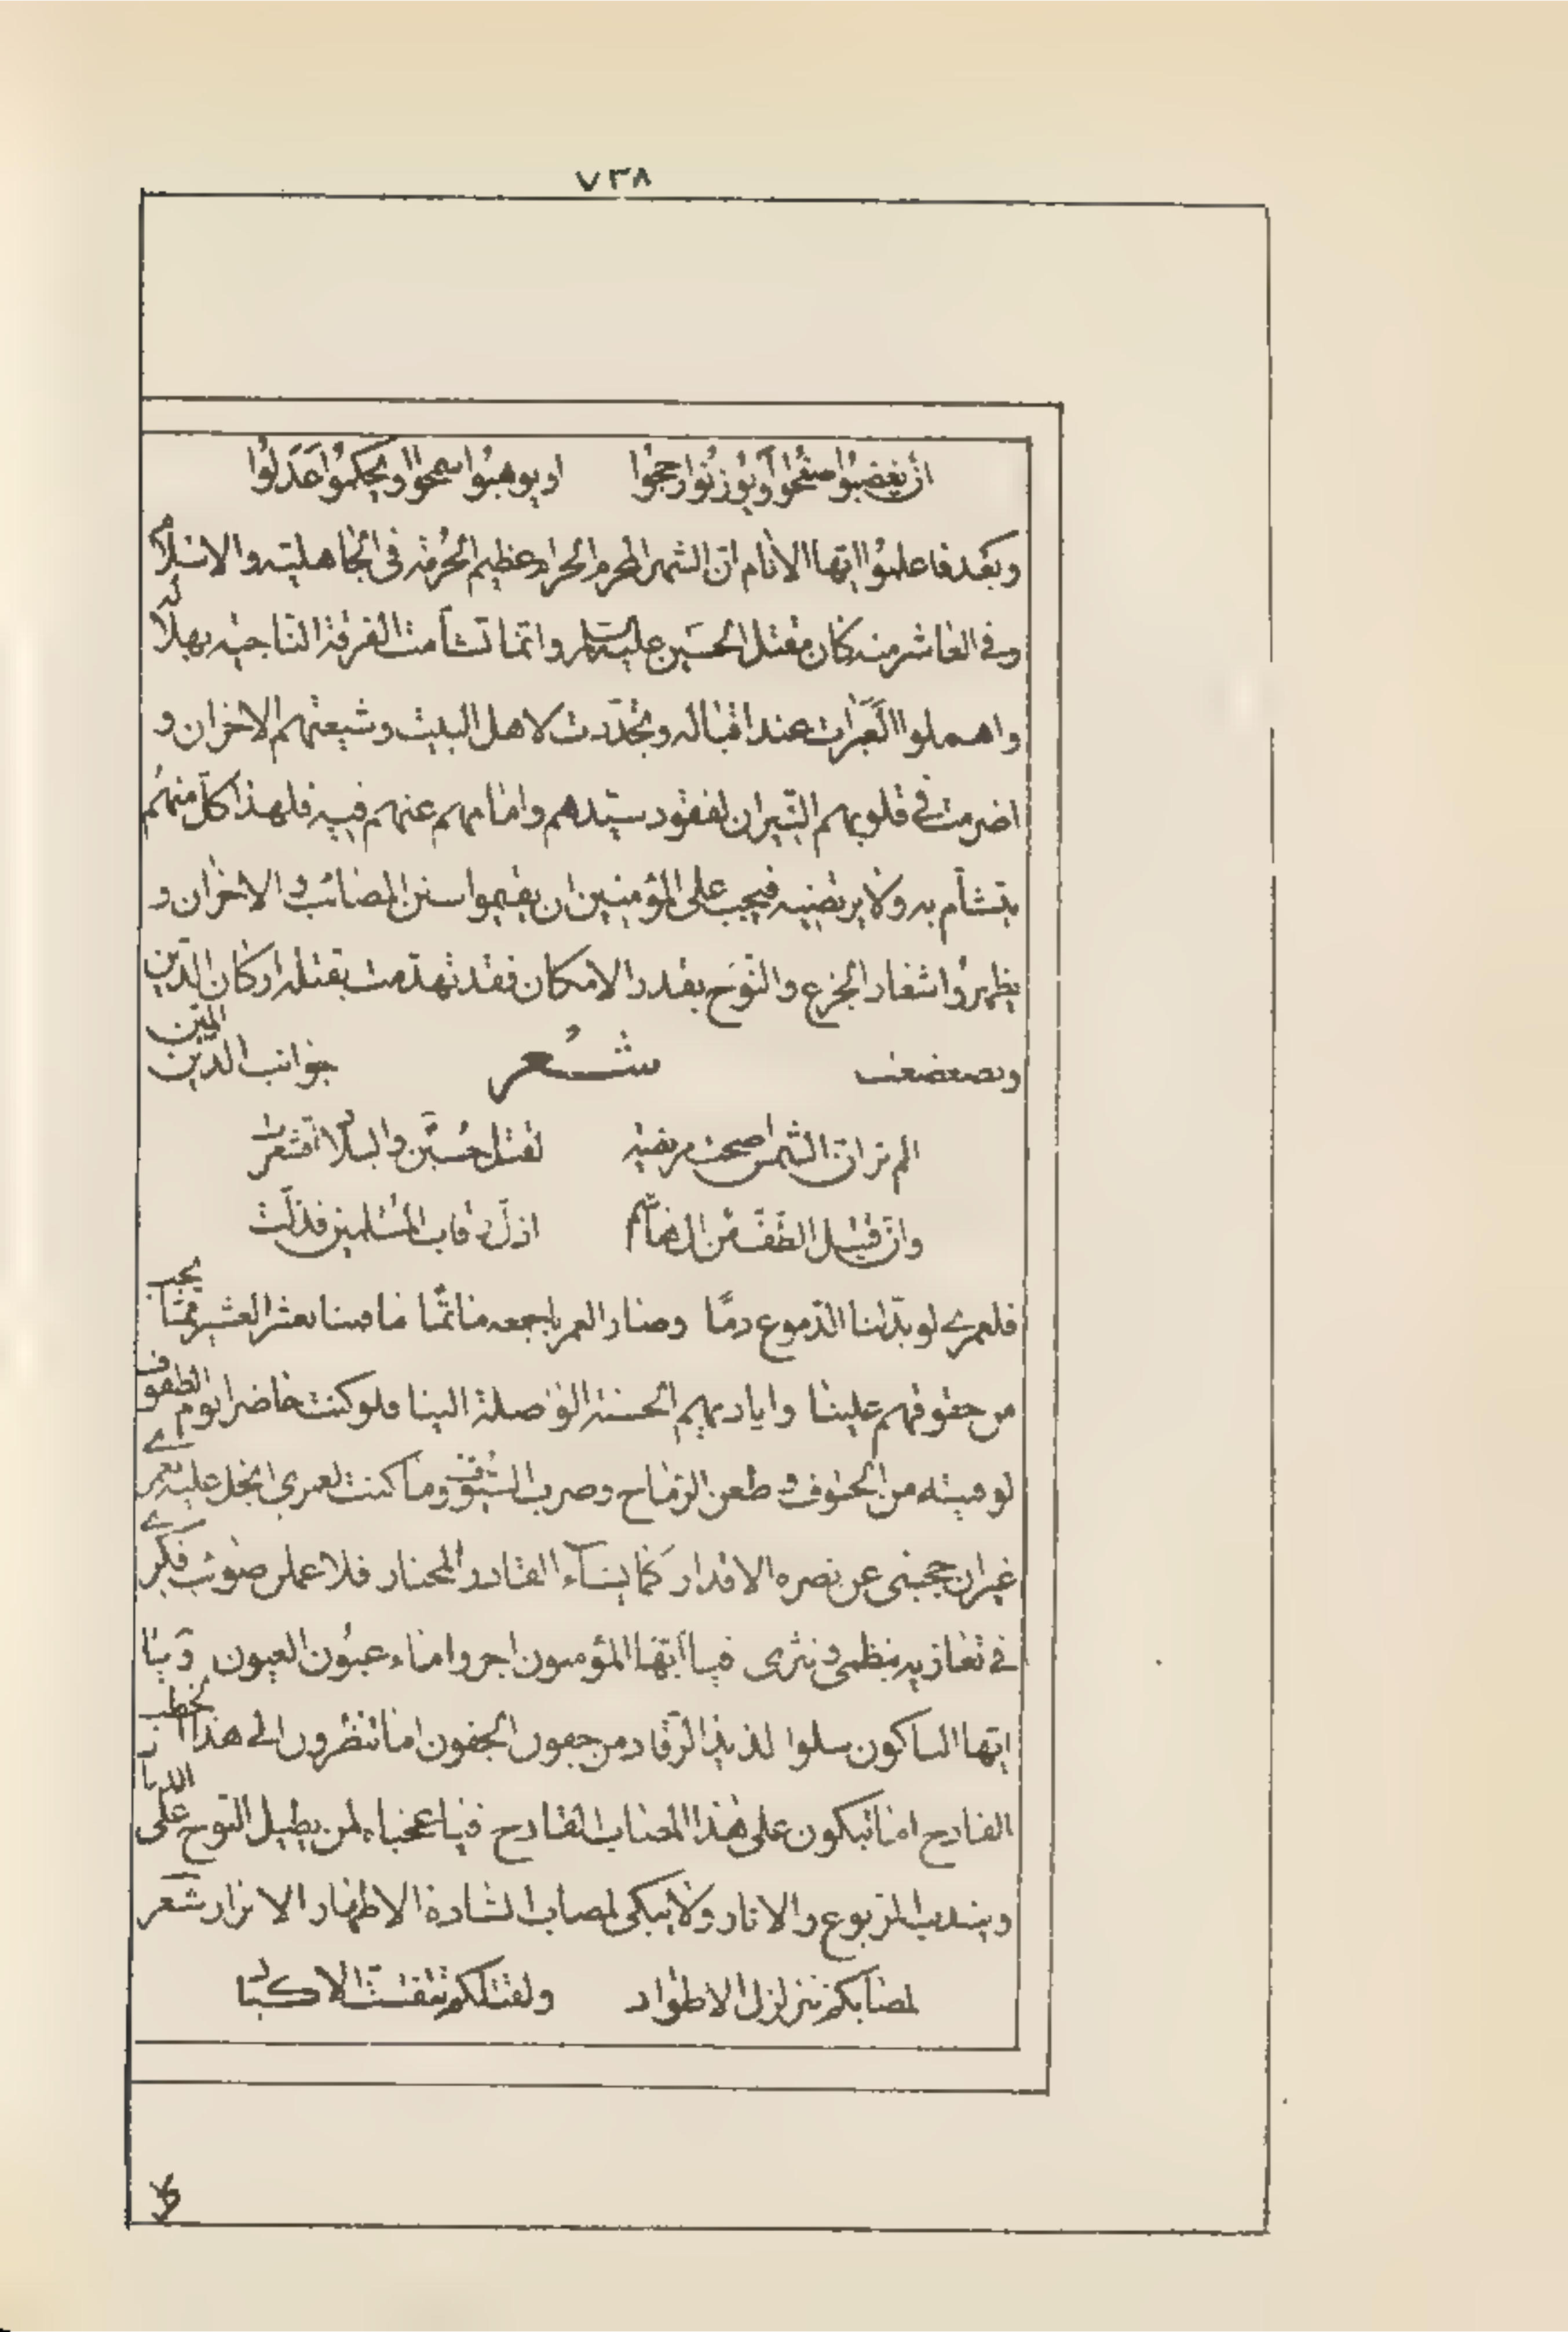 ٧٣٨
ان يغضبوا صفحوا او يوزنوا رجحوا او يوهبوا سمحوا او يحكموا عدلوا
وبعد فاعلموا ايها الانام ان الشهر المحرم الحرام عظيم الحرمة فى الجاهلية والاسلام
وفى العاشر منه كان مقتل الحسين عليه السلم وانما تشأمت الفرقة الناجية بهلاله
واهملوا العبرات عند اقباله وتجددت لاهل البيت وشيعتهم الاحزان و
اضرمت فى قلوبهم النيران لفقود سيدهم وامامهم عنهم فيه فلهذا كل منهم
يتشأم به ولا يرتضيه فيجب على المؤمنين ان يقيموا سنن المصائب والاحزان و
يظهروا شعار الجزع والنوح بقدر الامكان فقد تهدمت بقتله اركان الدين
وتضعضعت شعر جوانب الدين المتين
الم تر ان الشمس اضحت مريضة لقتل حسين والبلاد اقشعرت
وان قتيل الطف من ال هاشم اذل رقاب المسلمين فذلت
فلعمرى لو بدلنا الدموع دما وصار العمر باجمعه ماتما ما قمنا بعشر العشير مما يجب
من حقوقهم علينا واياديهم الحسنة الواصلة الينا فلو كنت حاضرا يوم الطفوف
لوقيته من الحتوف وطعن الرماح وضرب السيوف وما كنت لعمرى ابخل عليه بعمرى
غير ان حجبنى عن نصره الاقدار كما يشاء القادر المختار فلاعملن صوب فكرى
فى تعازيه بنظمى ونثرى فيا ايها المؤمنون اجروا ماء عيون العيون ويا
ايها الباكون سلوا لذيذ الرقاد من جفون الجفون اما تنظرون الى هذا الخطب
الفادح اما تبكون على هذا المصاب القادح فيا عجباه لمن يطيل النوح على
ويندب الربوع والاثار ولا يبكى لمصاب السادة الاطهار الابرار شعر
لمصابكم تتزلزل الاطواد ولقتلكم تتفتت الاكباد